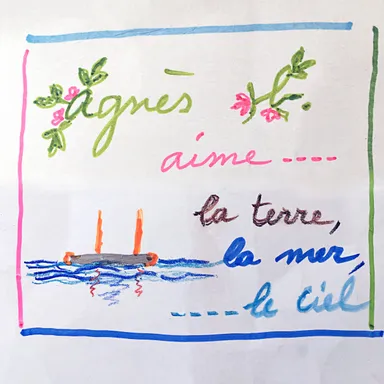 agnès H.
aime ----
la terre,
la mer,
----le ciel